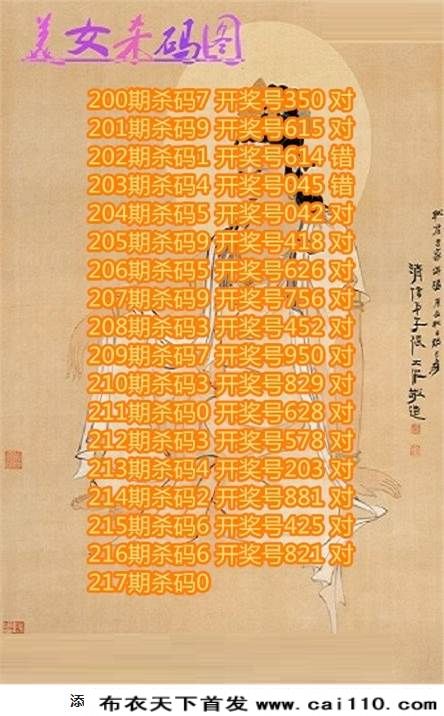 美女杀码图
200期杀码7 开奖号350 对
201期杀码9 开奖号615 对
202期杀码1 开奖号614 错
203期杀码4 开奖号045 错
204期杀码5 开奖号042 对
205期杀码9 开奖号418 对
206期杀码5 开奖号626 对
207期杀码9 开奖号756 对
208期杀码3 开奖号452 对
209期杀码7 开奖号950 对
210期杀码3 开奖号829 对
211期杀码0 开奖号628 对
212期杀码3 开奖号578 对
213期杀码4 开奖号203 对
214期杀码2 开奖号881 对
215期杀码6 开奖号425 对
216期杀码6 开奖号821 对
217期杀码0
添 布衣天下首发 www.cai110.com